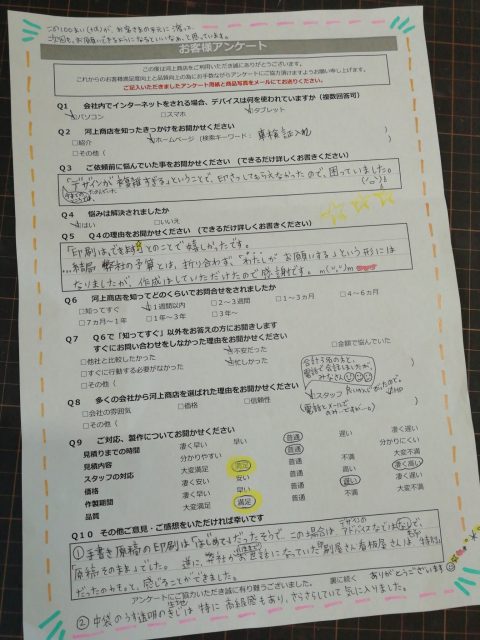 この100まい(+α)が、お客さまの手元に渡って、
次回も、お願いできるようになるといいなぁ、と思っています。
お客様アンケート
この度は河上商店をご利用いただき誠にありがとうございます。
これからのお客様満足度向上と品質向上の為にお手数ながらアンケートにご協力頂けますようお願い申し上げます。
ご記入いただきましたアンケート用紙と商品写真をメールにてお送りください。
Q1 会社内でインターネットをされる場合、デバイスは何を使われていますか(複数回答可)
□パソコン □スマホ □タブレット
Q2 河上商店を知ったきっかけをお聞かせください
□紹介 □ホームページ(検索キーワード: 車検証入れ )
□その他( )
Q3 ご依頼前に悩んでいた事をお聞かせください (できるだけ詳しくお書きください)
「デザインが複雑すぎる」ということで、印さつしてもらえなかったので、困っていました。
Q4 悩みは解決されましたか
□はい □いいえ
Q5 Q4の理由をお聞かせください (できるだけ詳しくお書きください)
「印刷はできます」とのことで嬉しかったです。
...結局 弊社の予算とは、折り合わず、「わたしがお願いする」という形には
なりましたが、作成はしていただけたので感謝です。m(_ _)m
Q6 河上商店を知ってどのくらいでお問合せをされましたか
□知ってすぐ □1週間以内 □2~3週間 □1~3ヵ月 □4~6ヵ月
□7ヵ月~1年 □1年~3年 □3年~
Q7 Q6で「知ってすぐ」以外をお答えの方にお聞きします
すぐにお問い合わせをしなかった理由をお聞かせください
□他社と比較したかった □不安だった □金額で悩んでいた
□すぐに行動する必要がなかった □忙しかった
□その他(
合計3名の方と、
電話で会話しましたが、
みなさん
Q8 多くの会社から河上商店を選ばれた理由をお聞かせください
□会社の雰囲気 □価格 □信頼性 □スタッフ 良いかんじだったので。 □HP
□その他( (電話とメールでのみですが…)
Q9 ご対応、製作についてお聞かせください
見積りまでの時間 凄く早い 早い 普通 遅い 凄く遅い
見積内容 分かりやすい 普通 分かりにくい
スタッフの対応 大変満足 満足 普通 不満 大変不満
価格 凄く安い 安い 普通 高い 凄く高い
作製期間 凄く早い 早い 普通 遅い 凄く遅い
品質 大変満足 満足 普通 不満 大変不満
Q10 その他ご意見・ご感想をいただければ幸いです
①手書き原稿の印刷は「はじめて」だったそうで、この場合は、デザインのアドバイスなどはなしで、
「原稿そのまま」でした。逆に、弊社がお世話になっていた印刷屋さん看板屋さんは、特殊
だったのかもっと、感じることができました。
アンケートにご協力いただき誠に有り難うございました。 裏に続く ありがとうございます
②中袋のうす透明の生地は特に高級感もあり、さらさらしていて気に入りました。